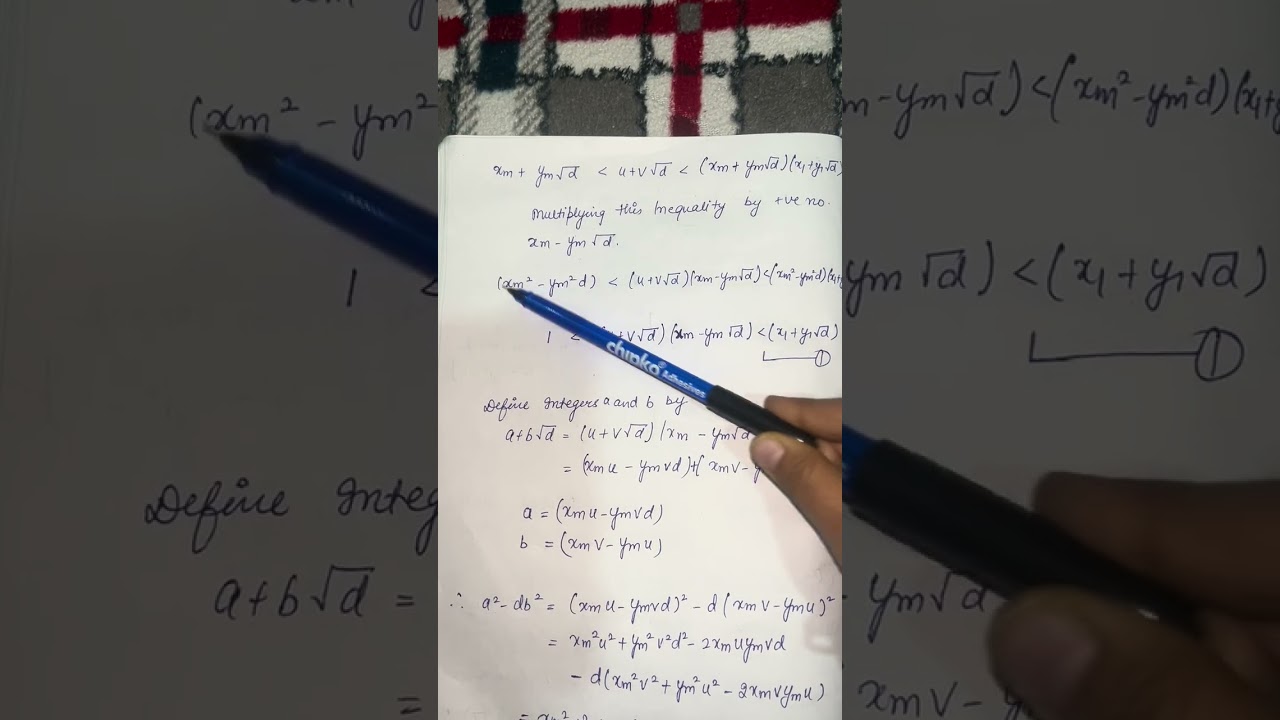 xm + ym√d < u+v√d < (xm + ym√d)(x₁+y₁√d)
Multiplying this Inequality by +ve no.
xm - ym√d.
(xm² - ym²d) < (u+v√d)(xm-ym√d)<(xm²-ym²d)(x₁+y
1 < +v√d)(xm-ym√d)<(x₁+y₁√d)
①
chipko® Adhesives
Define Integers a and b by
a+b√d = (u+v√d)(xm - ym√d
= (xmu - ymvd)+( xmv-y
a = (xmu-ymvd)
b = (xmv-ymu)
∴ a²-db² = (xmu-ymvd)² - d(xmv-ymu)²
= xm²u²+ym²v²d²-2xmuymvd
- d(xm²v²+ym²u²-2xmvymu)